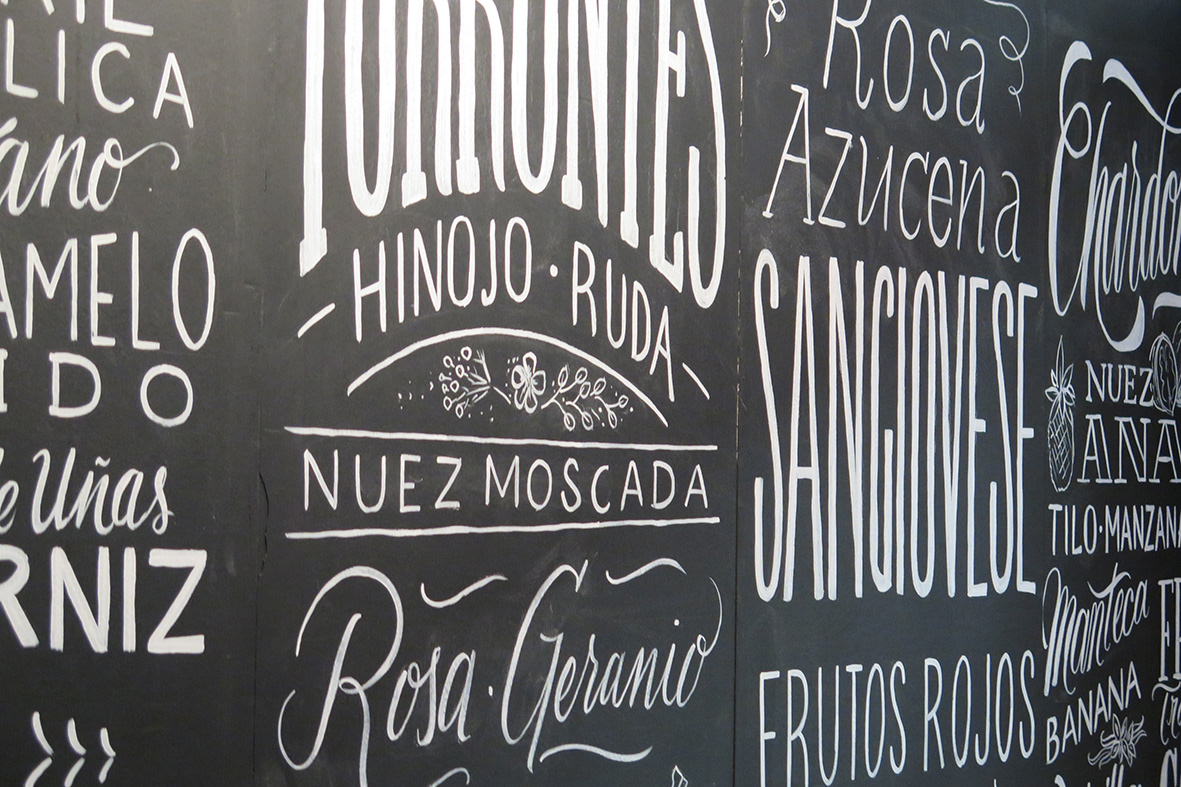 LICA
AMELO
IDO
de Uñas
RNIZ
TORRONTES
HINOJO · RUDA
NUEZ MOSCADA
Rosa · Geranio
Rosa
Azucena
SANGIOVESE
FRUTOS ROJOS
Chardon
NUEZ
ANA
TILO · MANZANA
Manteca
BANANA